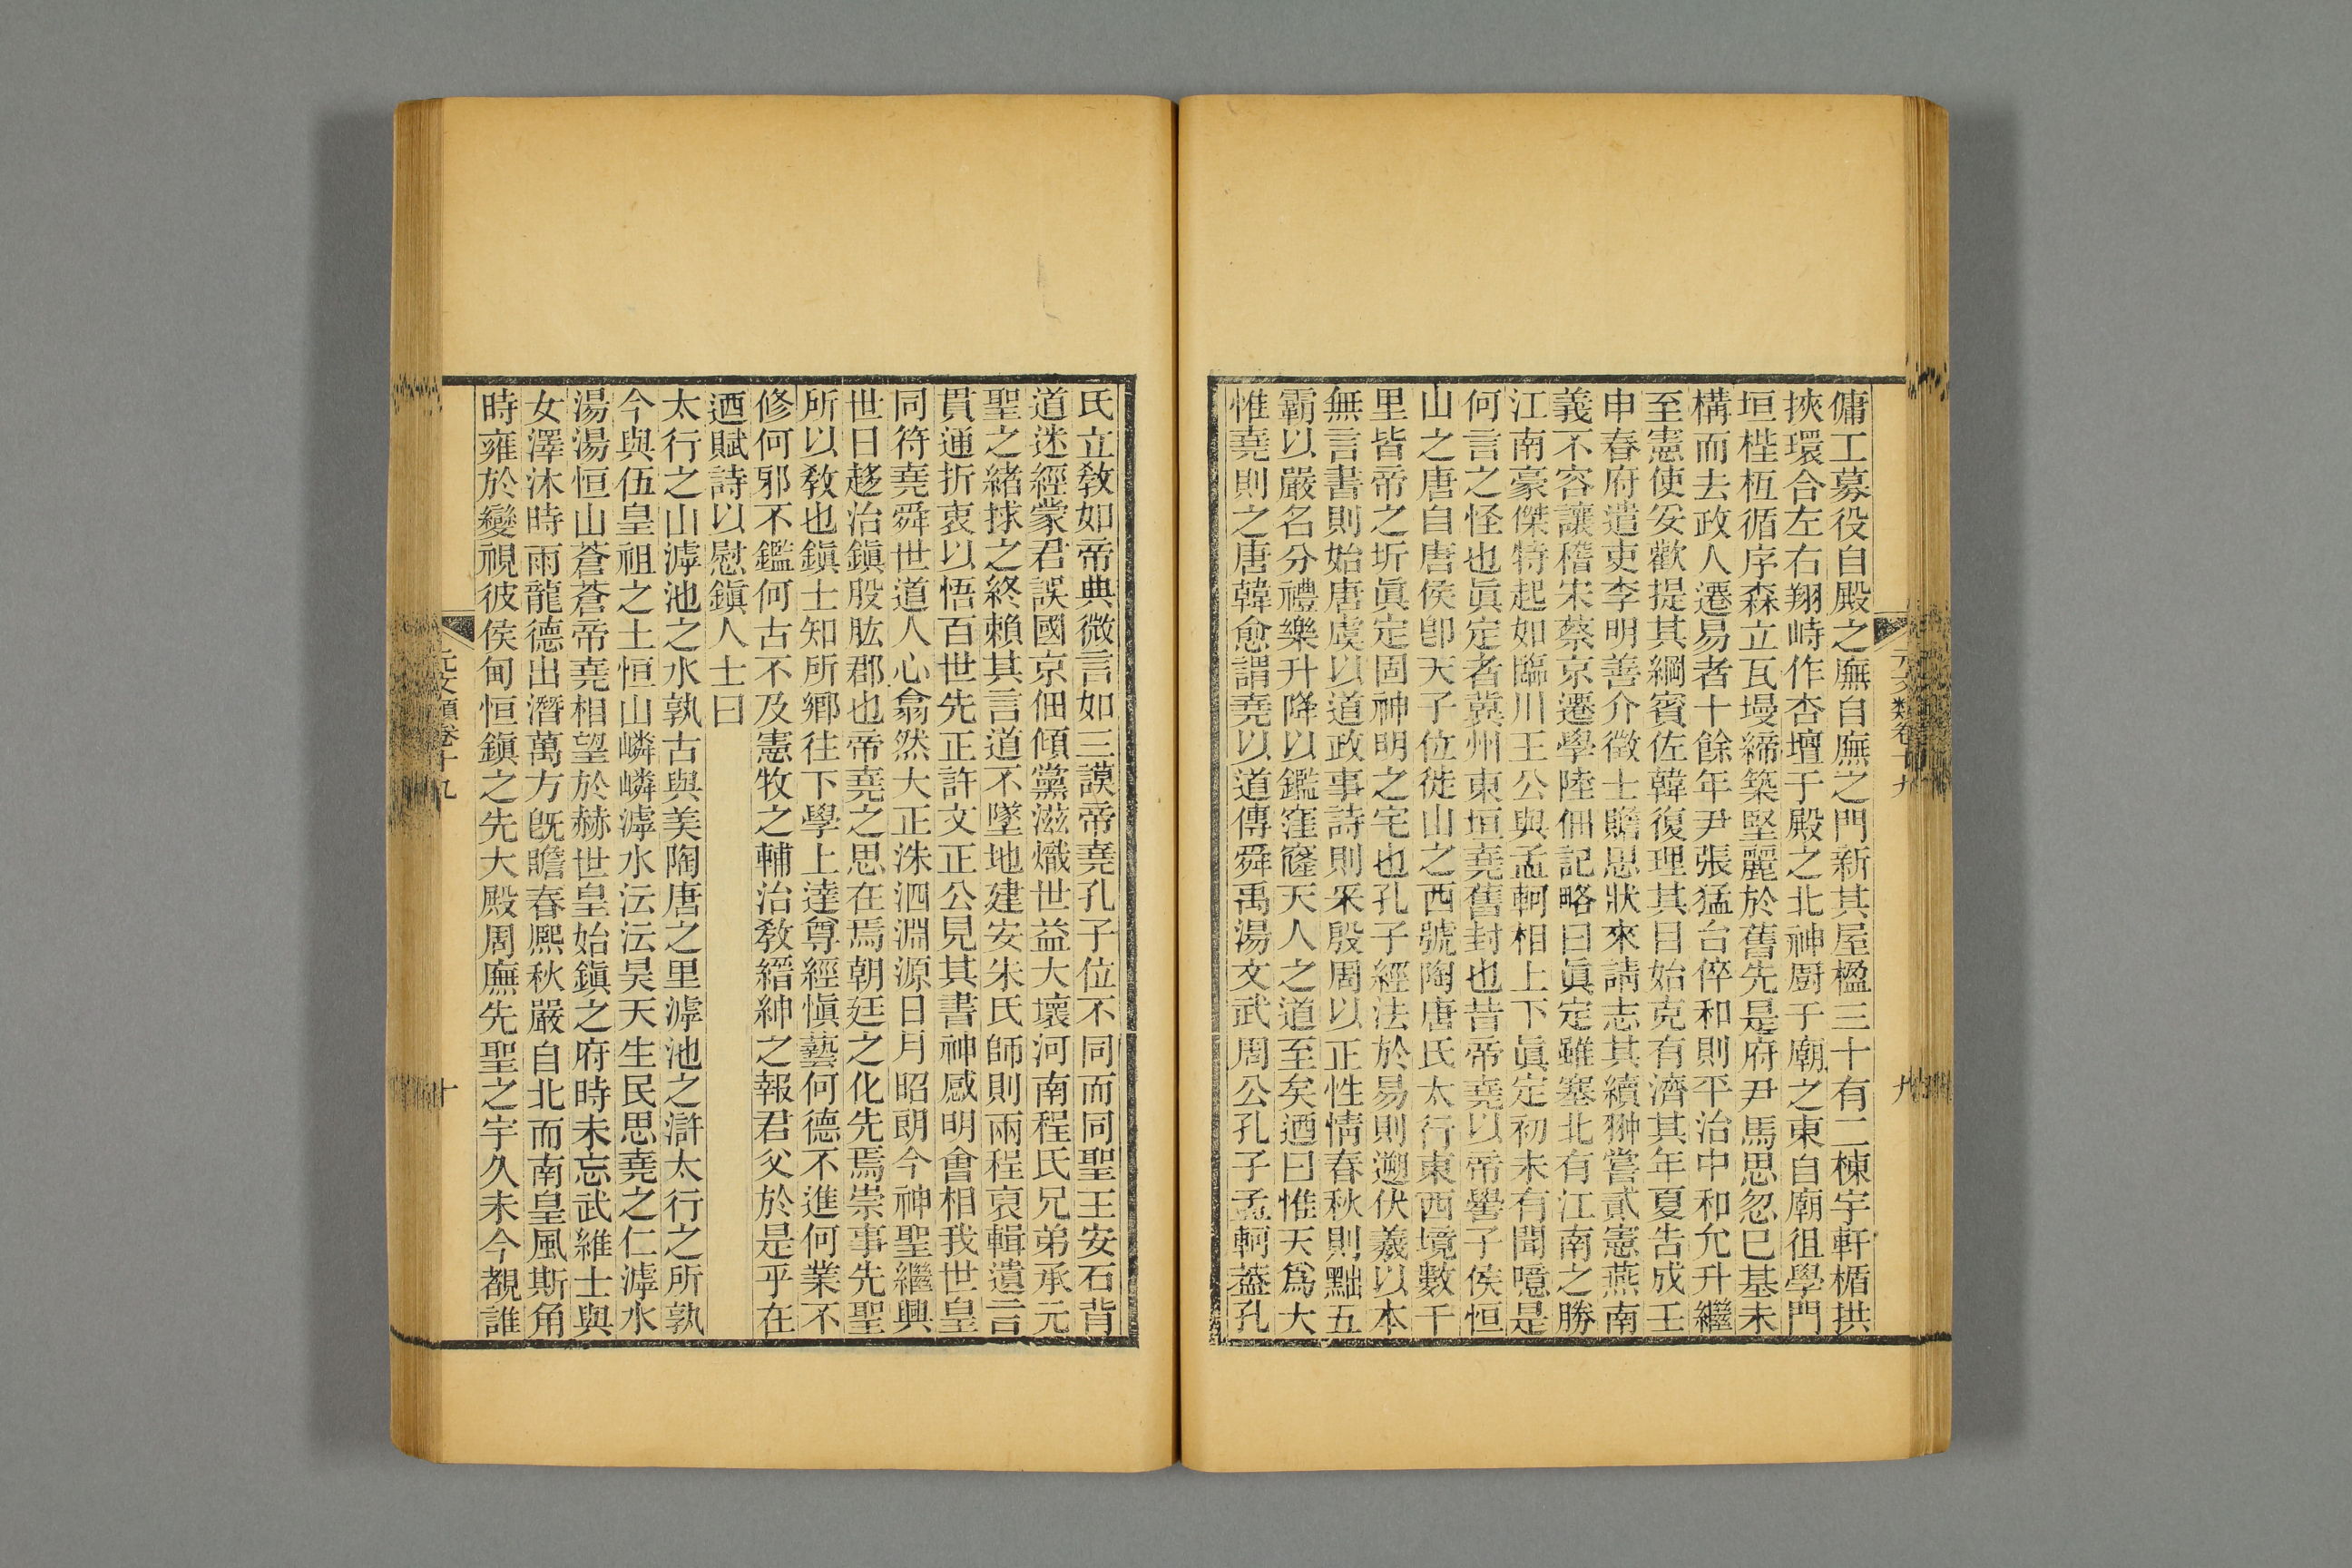 元文類卷十九
九
傭工募役自殿之廡自廡之門新其屋楹三十有二棟宇軒楯拱
挾環合左右翔峙作杏壇于殿之北神廚于廟之東自廟徂學門
垣梐枑循序森立瓦墁締築堅麗於舊先是府尹馬思忽巳基未
構而去政人遷易者十餘年尹張猛台倅和則平治中和允升繼
至憲使妟歡提其綱賓佐韓復理其目始克有濟其年夏告成壬
申春府遣吏李明善介徵士贍思狀來請志其續翀嘗貳憲燕南
義不容讓稽宋蔡京遷學陸佃記略曰眞定雖塞北有江南之勝
江南豪傑特起如臨川王公與孟軻相上下眞定初未有聞噫是
何言之怪也眞定者冀州東垣堯舊封也昔帝堯以帝嚳子侯恒
山之唐自唐侯卽天子位徙山之西號陶唐氏太行東西境數千
里皆帝之圻眞定固神明之宅也孔子經法於易則遡伏羲以本
無言書則始唐虞以道政事詩則釆殷周以正性情春秋則黜五
霸以嚴名分禮樂升降以鑑窪窿天人之道至矣迺曰惟天爲大
惟堯則之唐韓愈謂堯以道傳舜禹湯文武周公孔子孟軻葢孔
氏立敎如帝典微言如三謨帝堯孔子位不同而同聖王安石背
道迷經蒙君誤國京佃傾黨滋熾世益大壞河南程氏兄弟承元
聖之緖捄之終賴其言道不墜地建安朱氏師則兩程裒輯遺言
貫通折衷以悟百世先正許文正公見其書神感明會相我世皇
同符堯舜世道人心翕然大正洙泗淵源日月昭朗今神聖繼興
世日趍治鎭股肱郡也帝堯之思在焉朝廷之化先焉崇事先聖
所以敎也鎭士知所鄕往下學上達尊經愼藝何德不進何業不
修何邪不鑑何古不及憲牧之輔治敎縉紳之報君父於是乎在
迺賦詩以慰鎭人士曰
太行之山滹池之水孰古與美陶唐之里滹池之滸太行之所孰
今與伍皇祖之土恒山嶙嶙滹水沄沄昊天生民思堯之仁滹水
湯湯恒山蒼蒼帝堯相望於赫世皇始鎭之府時未忘武維士與
女澤沐時雨龍德出潛萬方旣瞻春熙秋嚴自北而南皇風斯角
時雍於變視彼侯甸恒鎭之先大殿周廡先聖之宇久未今覩誰
元文類卷十九
十